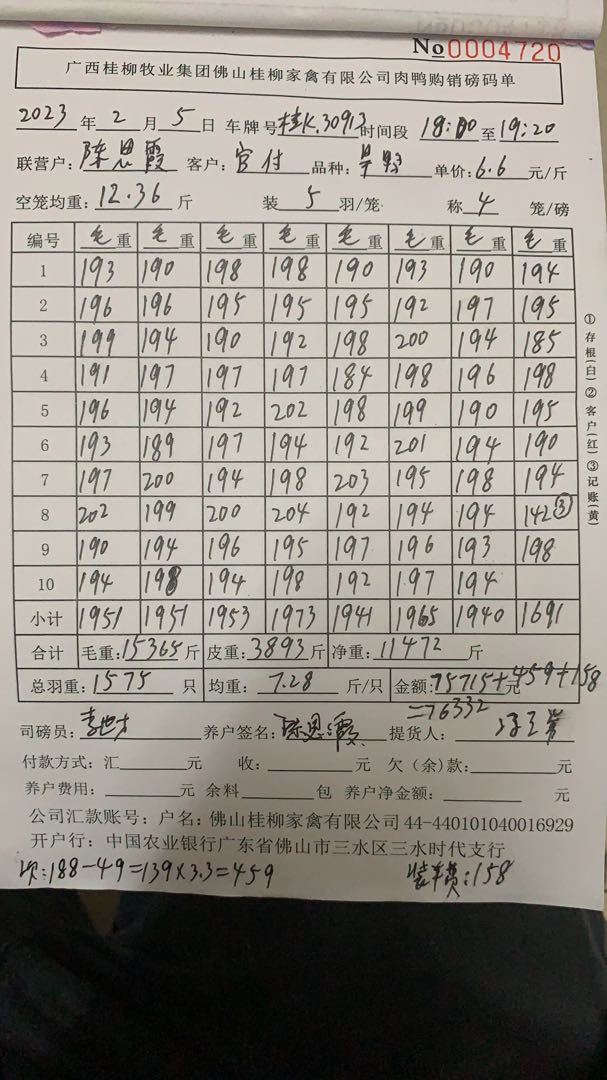 No0004720
广西桂柳牧业集团佛山桂柳家禽有限公司肉鸭购销磅码单
2023年2月5日 车牌号桂K.30913时间段 18:00至19:20
联营户:陈恩霞 客户:官付 品种: 单价:6.6元/斤
空笼均重:12.36斤 装5羽/笼 称4笼/磅
编号 毛重 毛重 毛重 毛重 毛重 毛重 毛重 毛重
1 193 190 198 198 190 193 190 194
2 196 196 195 195 195 192 197 195
3 199 194 190 192 198 200 194 185
4 191 197 197 197 184 198 196 198
5 196 194 192 202 198 199 190 195
6 193 189 197 194 192 201 194 190
7 197 200 194 198 203 195 198 194
8 202 199 200 204 192 194 194 142③
9 190 194 196 195 197 196 193 198
10 194 198 194 198 192 197 194
小计 1951 1951 1953 1973 1941 1965 1940 1691
合计 毛重:15365斤 皮重:3893斤 净重:11472斤
总羽重:1575只 均重:7.28斤/只 金额:75715+元459+158
=76332
司磅员: 养户签名:陈恩霞 提货人:
付款方式:汇 元 收: 元 欠(余)款: 元
养户费用: 元 余料 包 养户净金额: 元
公司汇款账号:户名:佛山桂柳家禽有限公司44-440101040016929
开户行:中国农业银行广东省佛山市三水区三水时代支行
次:188-49=139×3.3=459 装车费:158
①存根(白)②客户(红)③记账(黄)